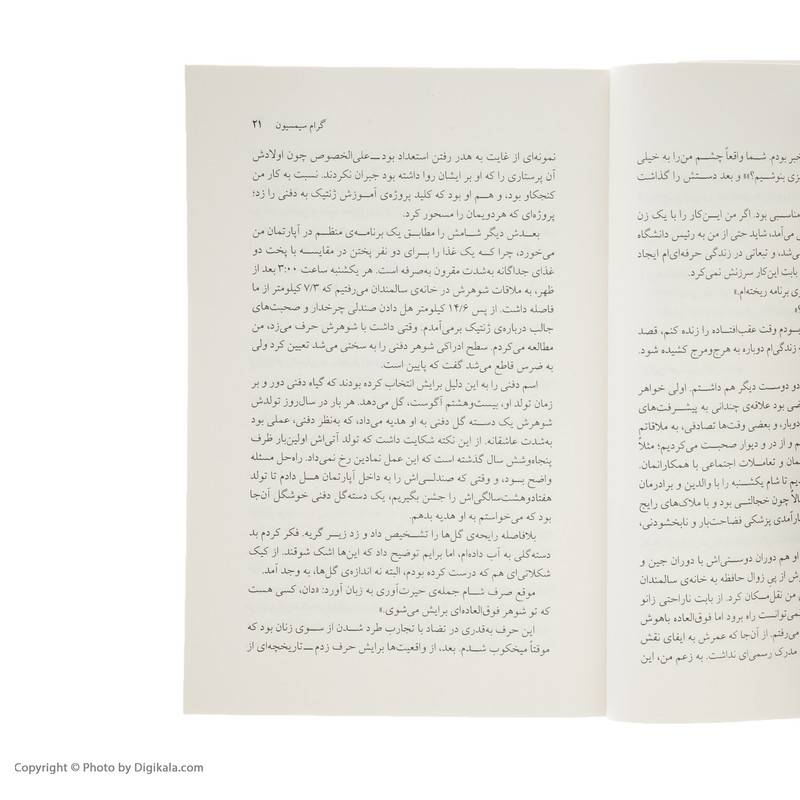 خبر بودم. شما واقعاً چشم من‌را به خیلی
بنوشیم؟» و بعد دستش را گذاشت
مناسبی بود. اگر من این‌کار را با یک زن
می‌آمد، شاید حتی از من به رئیس دانشگاه
و تبعاتی در زندگی حرفه‌ای‌ام ایجاد
بابت این‌کار سرزنش نمی‌کرد.
برنامه ریخته‌ام.»
بودم وقت عقب‌افتاده را زنده کنم، قصد
زندگی‌ام دوباره به هرج‌ومرج کشیده شود.
دو دوست دیگر هم داشتم. اولی خواهر
بود علاقه‌ی چندانی به پیشرفت‌های
دوبار، و بعضی وقت‌ها تصادفی، به ملاقاتم
و از در و دیوار صحبت می‌کردیم؛ مثلاً
و تعاملات اجتماعی با همکارانمان.
تا شام یکشنبه را با والدین و برادرمان
چون خجالتی بود و با ملاک‌های رایج
پزشکی فضاحت‌بار و نابخشودنی،
او هم دوران دوستی‌اش با دوران جین و
از پی زوال حافظه به خانه‌ی سالمندان
من نقل‌مکان کرد. از بابت ناراحتی زانو
نمی‌توانست راه برود اما فوق‌العاده باهوش
می‌رفتم. از آن‌جا که عمرش به ایفای نقش
مدرک رسمی‌ای نداشت. به زعم من، این
گرام سیمسیون ۲۱
نمونه‌ای از غایت به هدر رفتن استعداد بود ــ علی‌الخصوص چون اولادش
آن پرستاری را که او بر ایشان روا داشته بود جبران نکردند. نسبت به کار من
کنجکاو بود، و هم او بود که کلید پروژه‌ی آموزش ژنتیک به دفنی را زد؛
پروژه‌ای که هردویمان را مسحور کرد.
بعدش دیگر شامش را مطابق یک برنامه‌ی منظم در آپارتمان من
می‌خورد، چرا که یک غذا را برای دو نفر پختن در مقایسه با پخت دو
غذای جداگانه به‌شدت مقرون به‌صرفه است. هر یکشنبه ساعت ۳:۰۰ بعد از
ظهر، به ملاقات شوهرش در خانه‌ی سالمندان می‌رفتیم که ۷/۳ کیلومتر از ما
فاصله داشت. از پس ۱۴/۶ کیلومتر هل دادن صندلی چرخدار و صحبت‌های
جالب درباره‌ی ژنتیک برمی‌آمدم. وقتی داشت با شوهرش حرف می‌زد، من
مطالعه می‌کردم. سطح ادراکی شوهر دفنی را به سختی می‌شد تعیین کرد ولی
به ضرس قاطع می‌شد گفت که پایین است.
اسم دفنی را به این دلیل برایش انتخاب کرده بودند که گیاه دفنی دور و بر
زمان تولد او، بیست‌وهشتم آگوست، گل می‌دهد. هر بار در سال‌روز تولدش
شوهرش یک دسته گل دفنی به او هدیه می‌داد، که به‌نظر دفنی، عملی بود
به‌شدت عاشقانه. از این نکته شکایت داشت که تولد آتی‌اش اولین‌بار ظرف
پنجاه‌وشش سال گذشته است که این عمل نمادین رخ نمی‌داد. راه‌حل مسئله
واضح بود، و وقتی که صندلی‌اش را به داخل آپارتمان هل دادم تا تولد
هفتادوهشت‌سالگی‌اش را جشن بگیریم، یک دسته‌گل دفنی خوشگل آن‌جا
بود که می‌خواستم به او هدیه بدهم.
بلافاصله رایحه‌ی گل‌ها را تشخیص داد و زد زیر گریه. فکر کردم بد
دسته‌گلی به آب داده‌ام، اما برایم توضیح داد که این‌ها اشک شوقند. از کیک
شکلاتی‌ای هم که درست کرده بودم، البته نه اندازه‌ی گل‌ها، به وجد آمد.
موقع صرف شام جمله‌ی حیرت‌آوری به زبان آورد: «دان، کسی هست
که تو شوهر فوق‌العاده‌ای برایش می‌شوی.»
این حرف به‌قدری در تضاد با تجارب طرد شدن از سوی زنان بود که
موقتاً میخکوب شدم. بعد، از واقعیت‌ها برایش حرف زدم ــ تاریخچه‌ای از
Copyright © Photo by Digikala.com